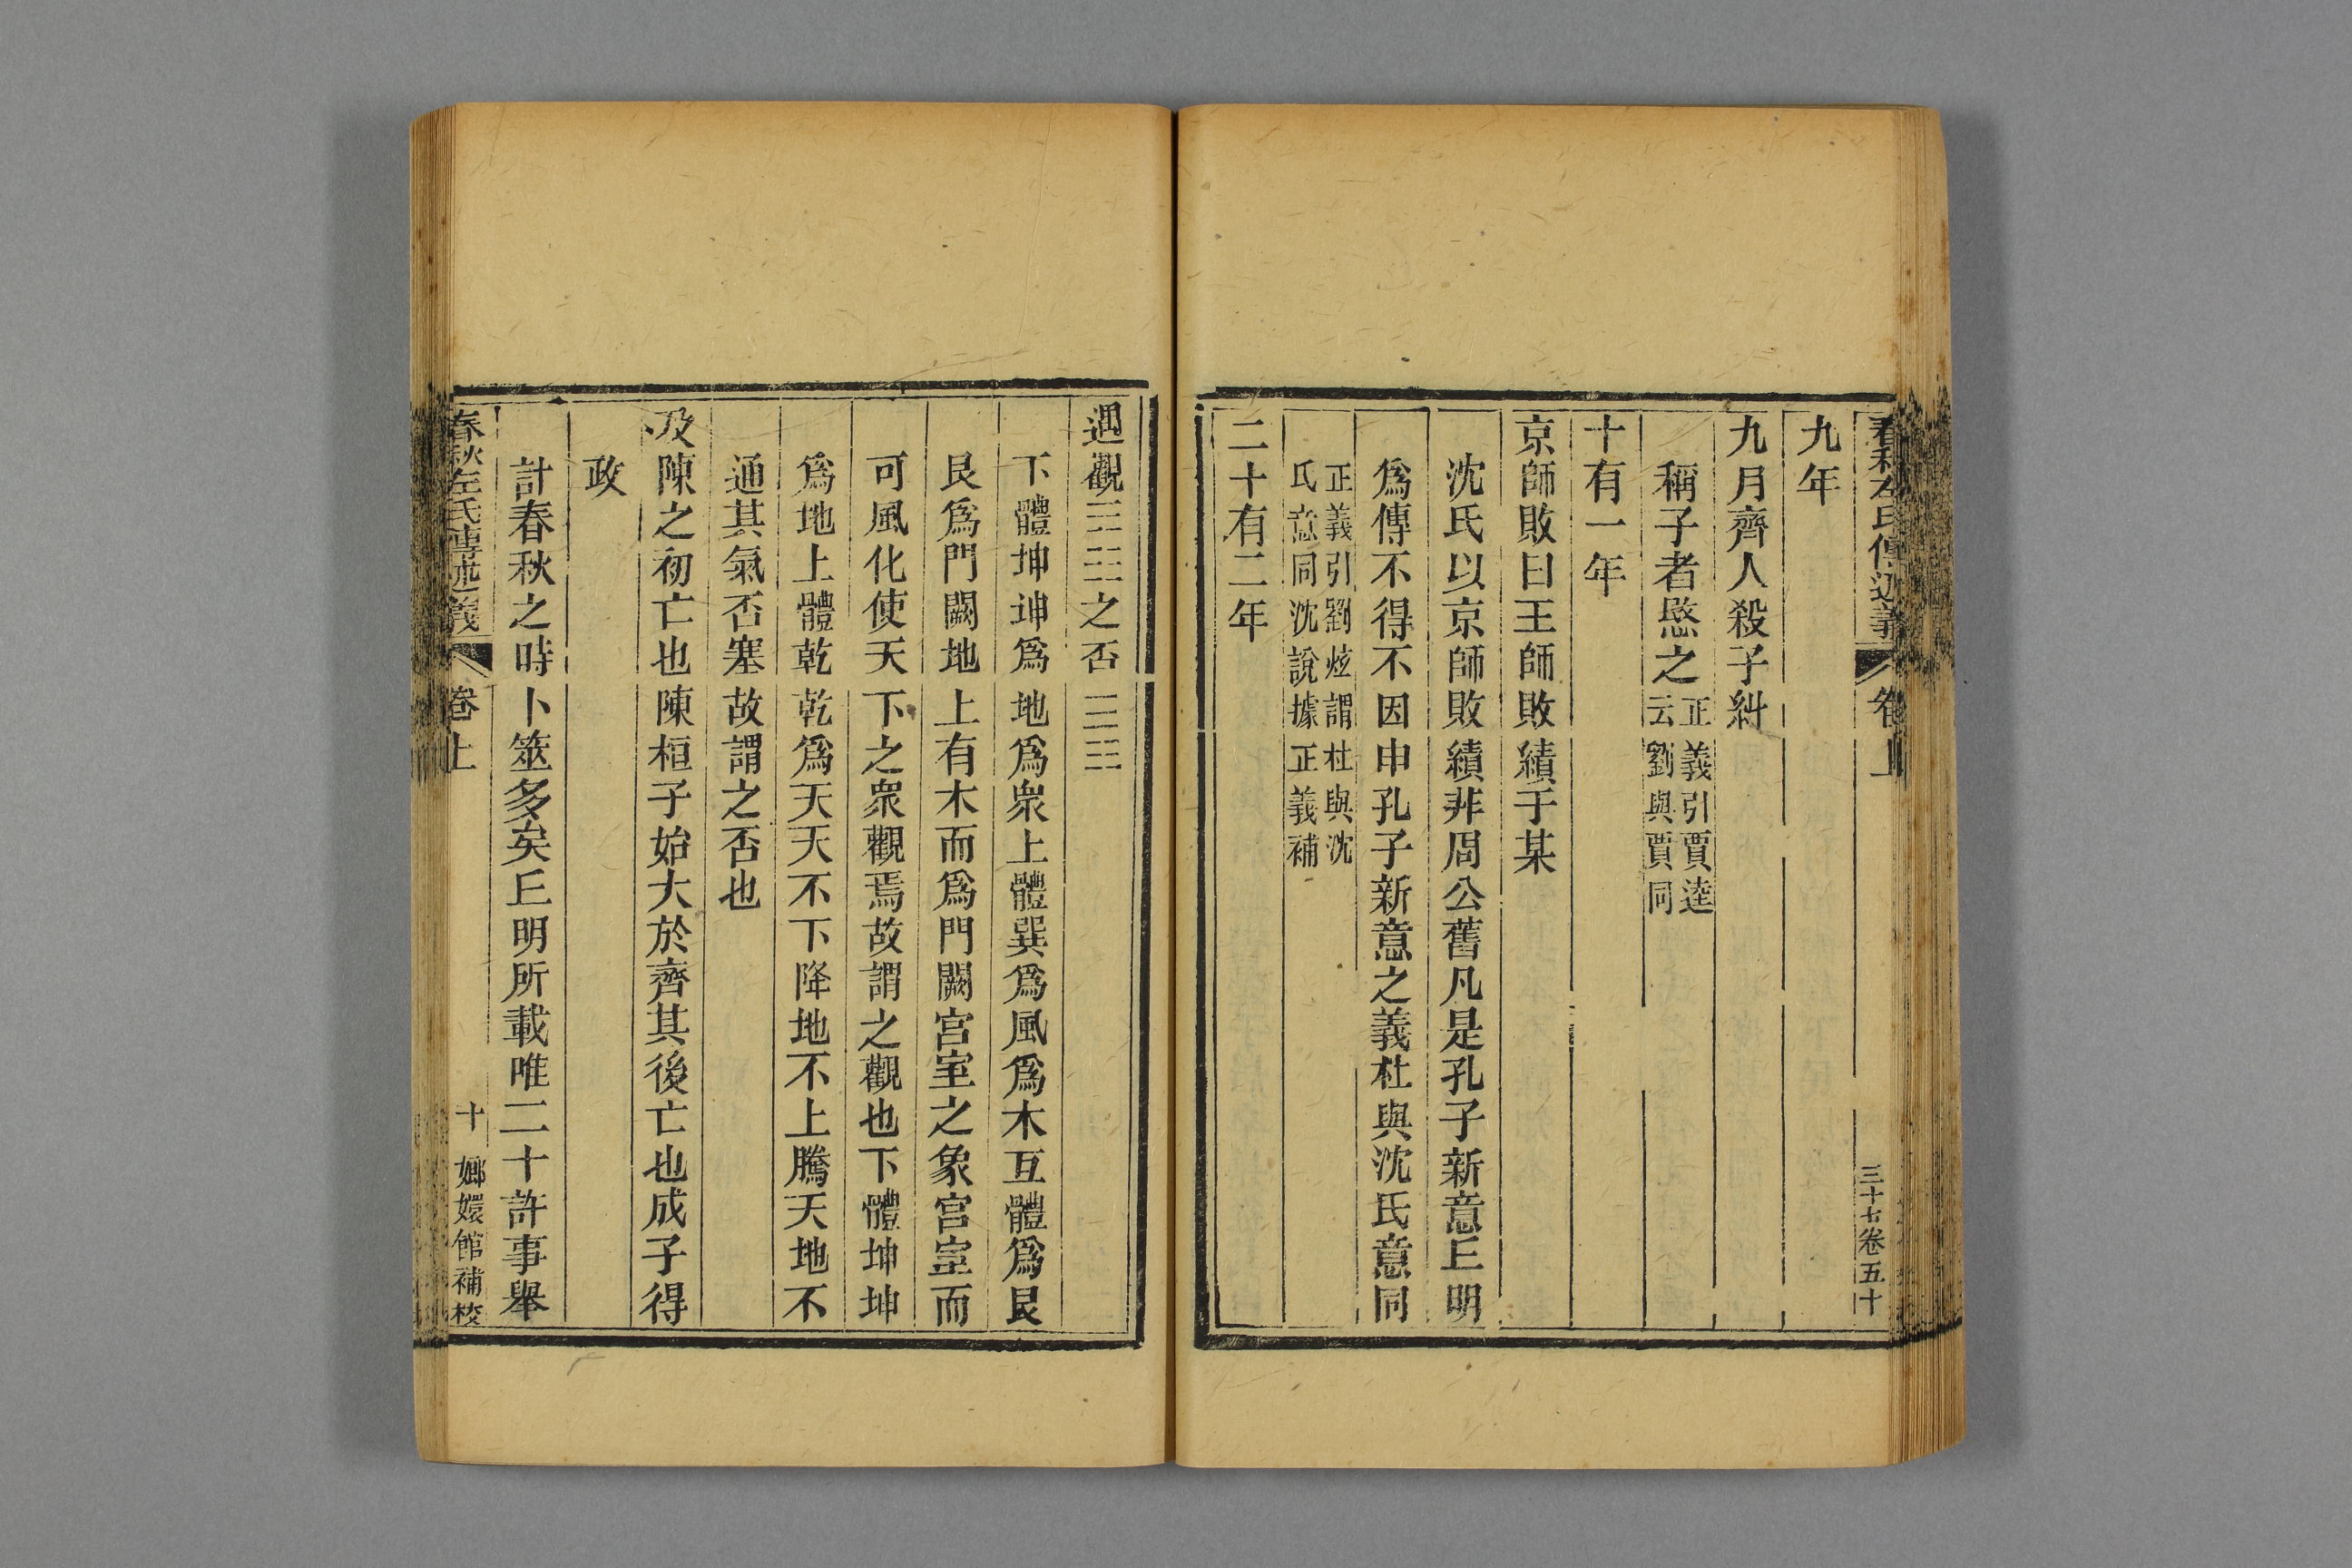 春秋左氏傳述義 卷上 三十七卷五十
九年
九月齊人殺子糾
稱子者愍之正義引賈逵
云劉與賈同
十有一年
京師敗曰王師敗績于某
沈氏以京師敗績非周公舊凡是孔子新意𠀉明
爲傳不得不因申孔子新意之義杜與沈氏意同
正義引劉炫謂杜與沈
氏意同沈說據正義補
二十有二年
遇觀☴☷之否☰☷
下體坤坤爲地爲衆上體巽爲風爲木互體爲艮
艮爲門闕地上有木而爲門闕宮室之象宮室而
可風化使天下之衆觀焉故謂之觀也下體坤坤
爲地上體乾乾爲天天不下降地不上騰天地不
通其氣否塞故謂之否也
及陳之初亡也陳桓子始大於齊其後亡也成子得
政
計春秋之時卜筮多矣𠀉明所載唯二十許事舉
春秋左氏傳述義 卷上 十 嫏嬛館補校